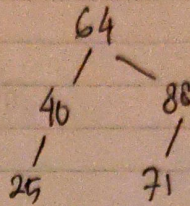 64
40 88
25 71